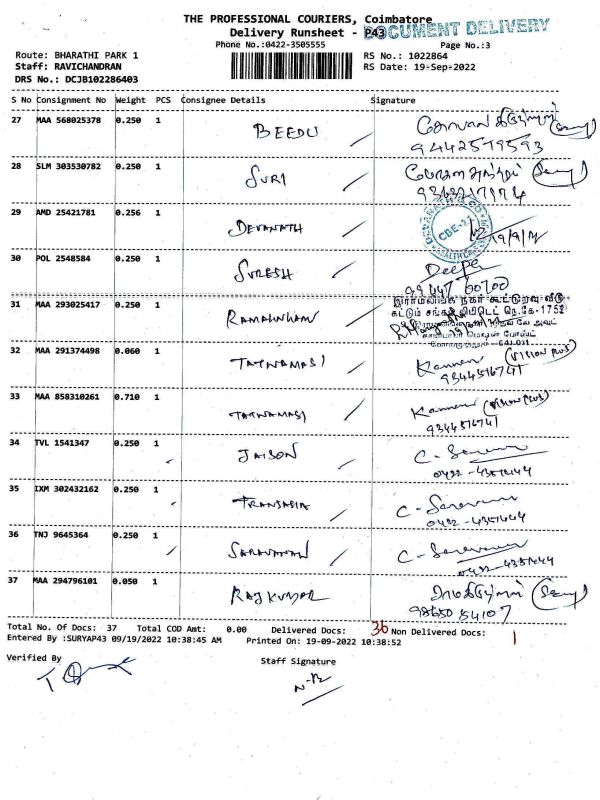 THE PROFESSIONAL COURIERS, Coimbatore
Delivery Runsheet - P43
DOCUMENT DELIVERY
Phone No.:0422-3505555 Page No.:3
Route: BHARATHI PARK 1 RS No.: 1022864
Staff: RAVICHANDRAN RS Date: 19-Sep-2022
DRS No.: DCJB102286403
S No Consignment No Weight PCS Consignee Details Signature
27 MAA 568025378 0.250 1 BEEDU
9442579593
28 SLM 303530782 0.250 1 SURI
29 AMD 25421781 0.256 1 DEVANATH 19/9/22
CBE-11
30 POL 2548584 0.250 1 SURESH Deepa
99447 00700
31 MAA 293025417 0.250 1 RAMALINGAM
32 MAA 291374498 0.060 1 TATWAMASI Kannan (VISION PLUS)
9344516741
33 MAA 858310261 0.710 1 TATWAMASI Kannan (VISION PLUS)
9344516741
34 TVL 1541347 0.250 1 JAISON
0422-4351444
35 IXM 302432162 0.250 1 TRANSASIA
0422-4351444
36 TNJ 9645364 0.250 1 SARAVANAN
0422-4351444
37 MAA 294796101 0.050 1 RAJKUMAR
98650 54107
Total No. Of Docs: 37 Total COD Amt: 0.00 Delivered Docs: 36 Non Delivered Docs: 1
Entered By :SURYAP43 09/19/2022 10:38:45 AM Printed On: 19-09-2022 10:38:52
Verified By Staff Signature